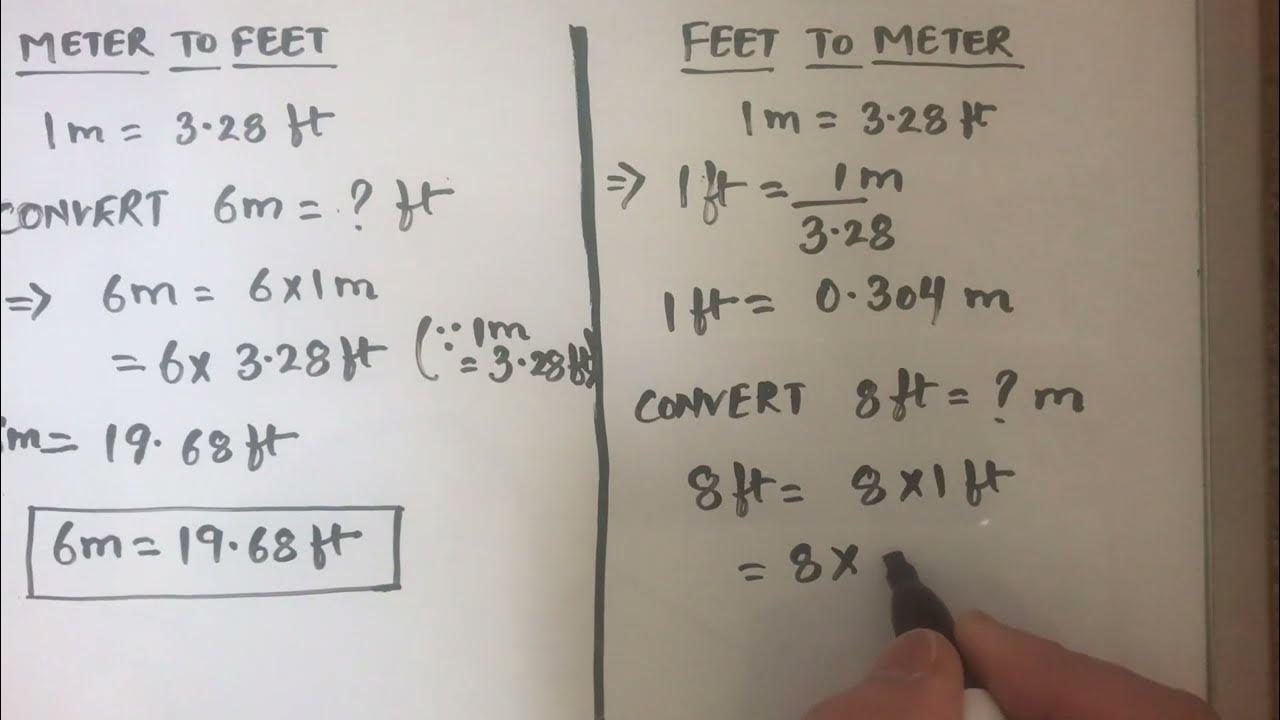 METER TO FEET
1m = 3.28 ft
CONVERT 6m = ? ft
⇒ 6m = 6×1m
= 6× 3.28ft (∵ 1m
= 3.28ft)
m = 19.68ft
6m = 19.68ft
FEET TO METER
1m = 3.28ft
⇒ 1ft = 1m
3.28
1ft = 0.304 m
CONVERT 8ft = ? m
8ft = 8×1ft
= 8×